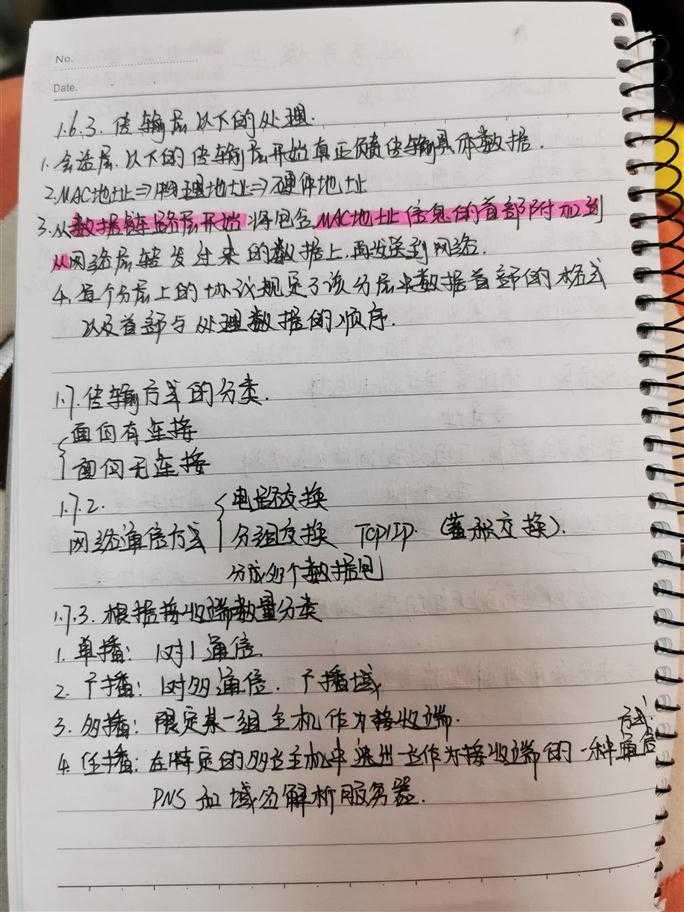 No.
Date.
1.6.3. 传输层以下的处理.
1. 会话层以下的传输层开始真正负责传输具体数据.
2. MAC地址⇒物理地址⇒硬件地址
3. 从数据链路层开始将包含MAC地址信息的首部附加到
从网络层转发过来的数据上,再发送到网络.
4. 每个分层上的协议规定了该分层上数据首部的格式
以及首部与处理数据的顺序.
1.7. 传输方式的分类.
面向有连接
面向无连接
1.7.2.
网络通信方式
电路交换
分组交换 TCP/IP. (蓄积交换).
分成多个数据包
1.7.3. 根据接收端数量分类
1. 单播: 1对1通信
2. 广播: 1对多通信. 广播域
3. 多播: 限定某一组主机作为接收端.
4. 任播: 在特定的多台主机中选出一台作为接收端的一种通信方式.
DNS 和域名解析服务器.